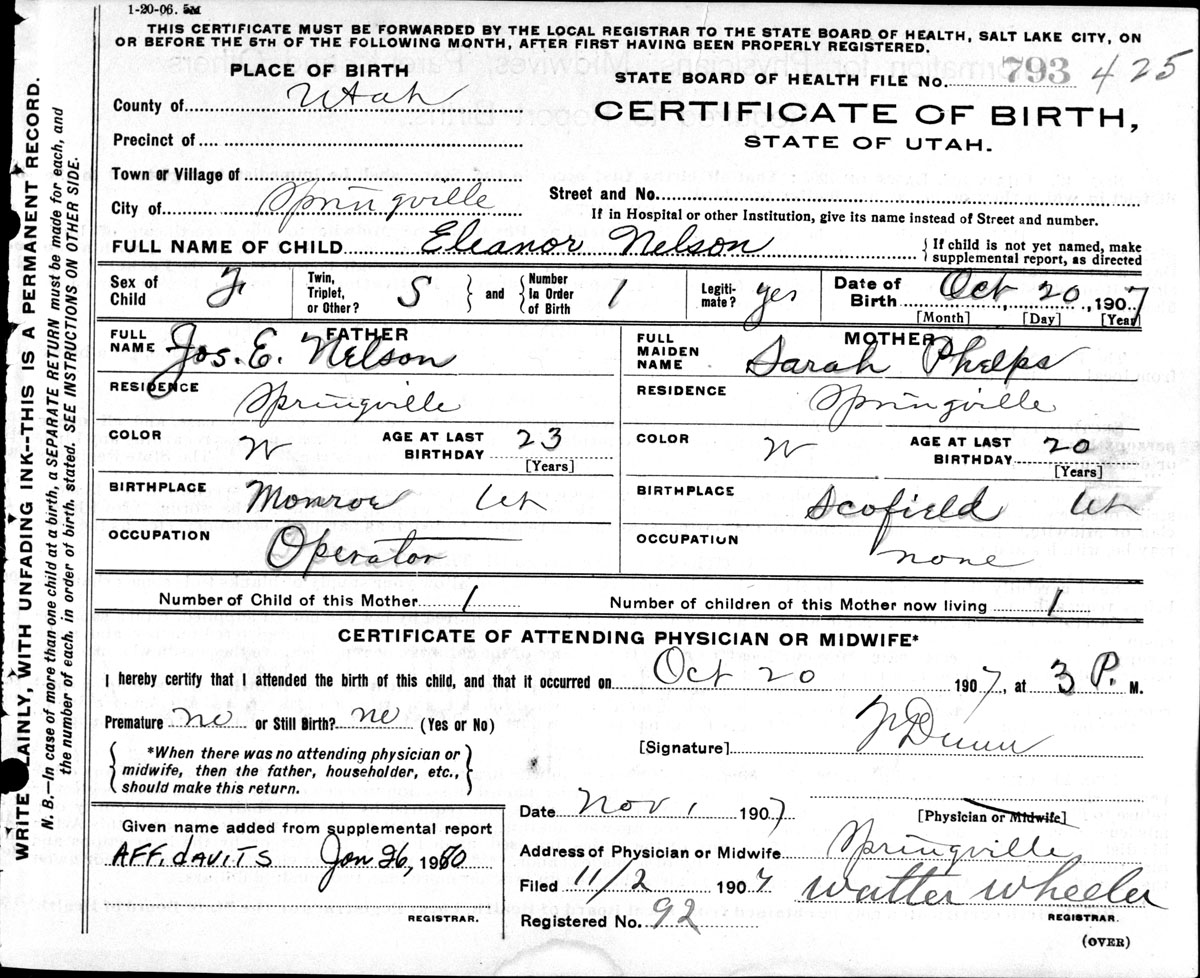 1-20-06. 5M
THIS CERTIFICATE MUST BE FORWARDED BY THE LOCAL REGISTRAR TO THE STATE BOARD OF HEALTH, SALT LAKE CITY, ON
OR BEFORE THE 5TH OF THE FOLLOWING MONTH, AFTER FIRST HAVING BEEN PROPERLY REGISTERED.
WRITE PLAINLY, WITH UNFADING INK--THIS IS A PERMANENT RECORD.
N. B.—In case of more than one child at a birth, a SEPARATE RETURN must be made for each, and
the number of each, in order of birth, stated. SEE INSTRUCTIONS ON OTHER SIDE.
PLACE OF BIRTH
County of Utah
Precinct of
Town or Village of
City of Springville
STATE BOARD OF HEALTH FILE NO. 793 425
CERTIFICATE OF BIRTH,
STATE OF UTAH.
Street and No.
If in Hospital or other Institution, give its name instead of Street and number.
FULL NAME OF CHILD Eleanor Nelson
If child is not yet named, make
supplemental report, as directed
Sex of Child F
Twin, Triplet, or Other? S and Number In Order of Birth 1
Legitimate? yes
Date of Birth Oct 20, 1907
[Month] [Day] [Year]
FATHER
FULL NAME Jos. E. Nelson
RESIDENCE Springville
COLOR W AGE AT LAST BIRTHDAY 23
[Years]
BIRTHPLACE Monroe Ut
OCCUPATION Operator
MOTHER
FULL MAIDEN NAME Sarah Phelps
RESIDENCE Springville
COLOR W AGE AT LAST BIRTHDAY 20
[Years]
BIRTHPLACE Scofield Ut
OCCUPATION none
Number of Child of this Mother 1 Number of children of this Mother now living 1
CERTIFICATE OF ATTENDING PHYSICIAN OR MIDWIFE*
I hereby certify that I attended the birth of this child, and that it occurred on Oct 20 1907, at 3 P. M.
Premature no or Still Birth? no (Yes or No)
*When there was no attending physician or
midwife, then the father, householder, etc.,
should make this return.
[Signature] Dunn
[Physician or Midwife]
Given name added from supplemental report
AFFidAVITS Jan 26, 1960
REGISTRAR.
Date Nov 1 1907
Address of Physician or Midwife Springville
Filed 11/2 1907 Walter Wheeler
REGISTRAR.
Registered No. 92
(OVER)